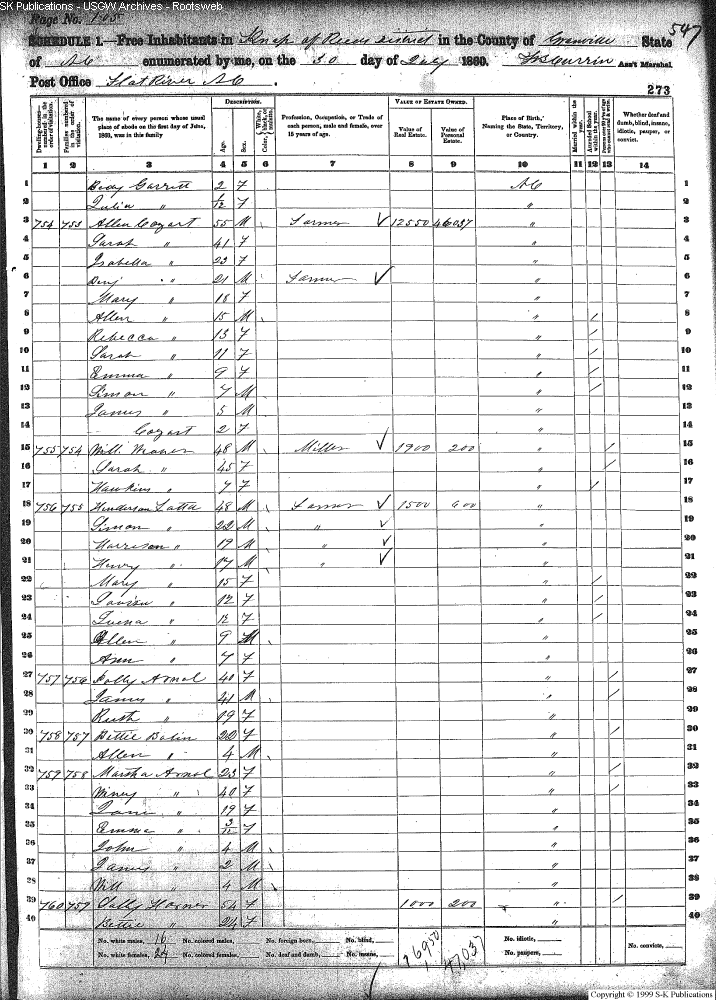 SK Publications - USGW Archives - Rootsweb
Page No. 105
547
SCHEDULE 1.—Free Inhabitants in Knap of Reeds District in the County of Granville State
of NC enumerated by me, on the 30 day of July 1860. Ass't Marshal
Post Office Flat River NC.
273
Dwelling-houses—numbered in the order of visitation.
Families numbered in the order of visitation.
The name of every person whose usual place of abode on the first day of June, 1860, was in this family
DESCRIPTION.
Age.
Sex.
Color, White, black, or mulatto.
Profession, Occupation, or Trade of each person, male and female, over 15 years of age.
VALUE OF ESTATE OWNED.
Value of Real Estate.
Value of Personal Estate.
Place of Birth, Naming the State, Territory, or Country.
Married within the year.
Attended School within the year.
Whether deaf and dumb, blind, insane, idiotic, pauper, or convict.
1 2 3 4 5 6 7 8 9 10 11 12 13 14
1 Garrett 2 F NC 1
2 Julia " 1/12 F " 2
3 754 753 Allen Cozart 55 M Farmer ✓ 12550 46037 " 3
4 Sarah " 41 F " 4
5 Isabella " 23 F " 5
6 Benj " 21 M Farmer ✓ " 6
7 Mary " 18 F " 7
8 Allen " 15 M " / 8
9 Rebecca " 13 F " / 9
10 Sarah " 11 F " / 10
11 Emma " 9 F " / 11
12 Simon " 7 M " / 12
13 James " 5 M " 13
14 Cozart 2 F " 14
15 755 754 Will. Weaver 48 M Miller ✓ 1900 200 " / 15
16 Sarah " 45 F " / 16
17 Hawkins " 7 F " / 17
18 756 755 Henderson Latta 48 M Farmer ✓ 1500 600 " 18
19 Simon " 22 M " ✓ " 19
20 Harrison " 19 M " ✓ " 20
21 Henry " 17 M " ✓ " 21
22 Mary " 15 F " / 22
23 " 12 F " / 23
24 " 12 F " / 24
25 Allen " 9 M " 25
26 Ann " 7 F " 26
27 757 756 Polly Arnol 40 F " / 27
28 James " 41 M " / 28
29 Ruth " 19 F " 29
30 758 757 Bettie Bolin 22 F " / 30
31 Allen " 4 M " 31
32 759 758 Martha Arnol 23 F " / 32
33 Winey " 40 F " / 33
34 Jane " 19 F " 34
35 Emma " 3/12 F " 35
36 John " 4 M " 36
37 James " 2 M " 37
38 Will " 4 M " 38
39 760 759 Sally 54 F 1000 200 " / 39
40 Bettie " 24 F " 40
No. white males, 16 No. colored males, No. foreign born, No. blind, No. idiotic, No. convicts,
No. white females, 24 No. colored females, No. deaf and dumb, No. insane, No. paupers,
16950
47037
Copyright © 1999 S-K Publications